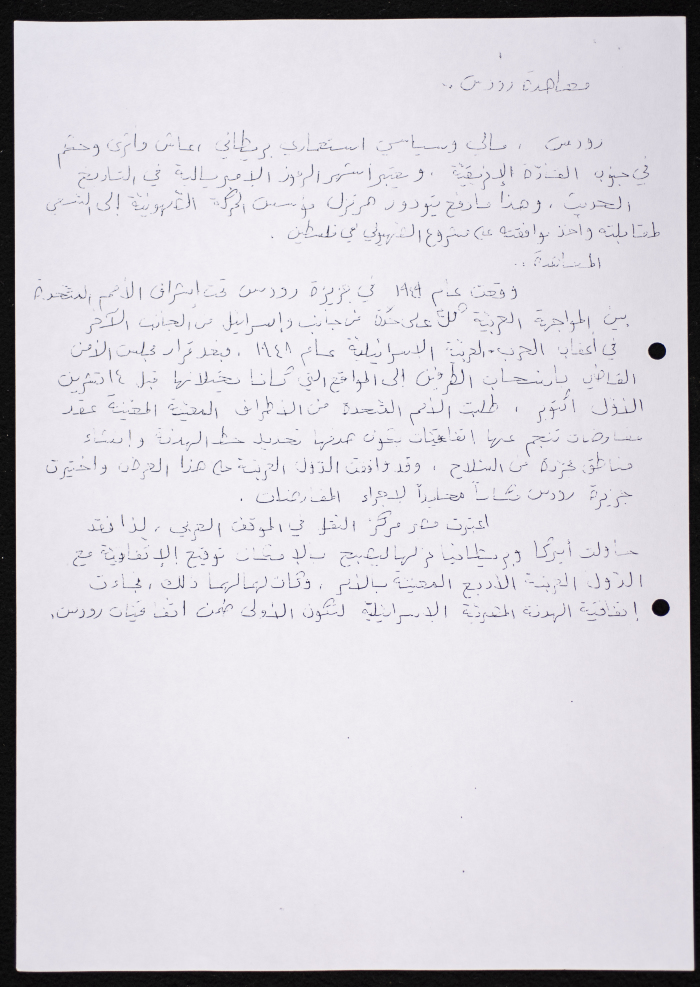 معاهدة رودس ..
رودس ، مالي وسياسي استعماري بريطاني ، عاش واثرى وحكم
في جنوب القارّة الإفريقيّة . ويعتبر اشهر الرموز الامبريالية في التاريخ
الحديث ، وهذا ما دفع تيودور هرتزل مؤسس الحركة الصّهيونيّة إلى السعي
لمقابلته وأخذ موافقته على المشروع الصّهيوني في فلسطين .
المعاهدة ..
وقعت عام ١٩٤٩ في جزيرة رودس تحت اشراف الأمم المتّحدة
بين المواجهة العربيّة كلّ على حدّة من جانب واسرائيل من الجانب الآخر
في أعقاب الحرب العربيّة الاسرائيليّة عام ١٩٤٨ . وبعد قرار مجلس الأمن
القاضي بانسحاب الطرفين إلى المواقع التي كانا يحتلانها قبل ١٤ تشرين
الأوّل أكتوبر ، طلبت الأمم المتّحدة من الأطراف المعنيّة عقد
مفاوضات تنجم عنها اتفاقيّات يكون هدفها تحديد خط الهدنة وإنشاء
مناطق مجرّدة من السّلاح ، وقد وافقت الدّول العربيّة على هذا العرض واختيرت
جزيرة رودس مكاناً محايداً لإجراء المفاوضات .
اعتبرت مصر مركز الثقل في الموقف العربي ، لذا فقد
حاولت أميركا وبريطانيا عزلها ليصبح بالإمكان توقيع الإتفاقية مع
الدّول العربيّة الأربع المعنيّة بالأمر . وكان لهما ذلك ، فجاءت
إتفاقيّة الهدنة المصريّة الاسرائيليّة لتكون الأولى ضمن اتفاقيات رودس .